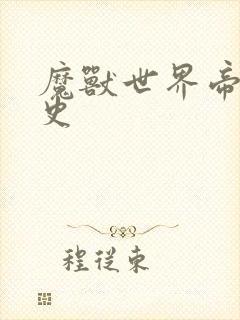 魔獸世界帝
史
程從東